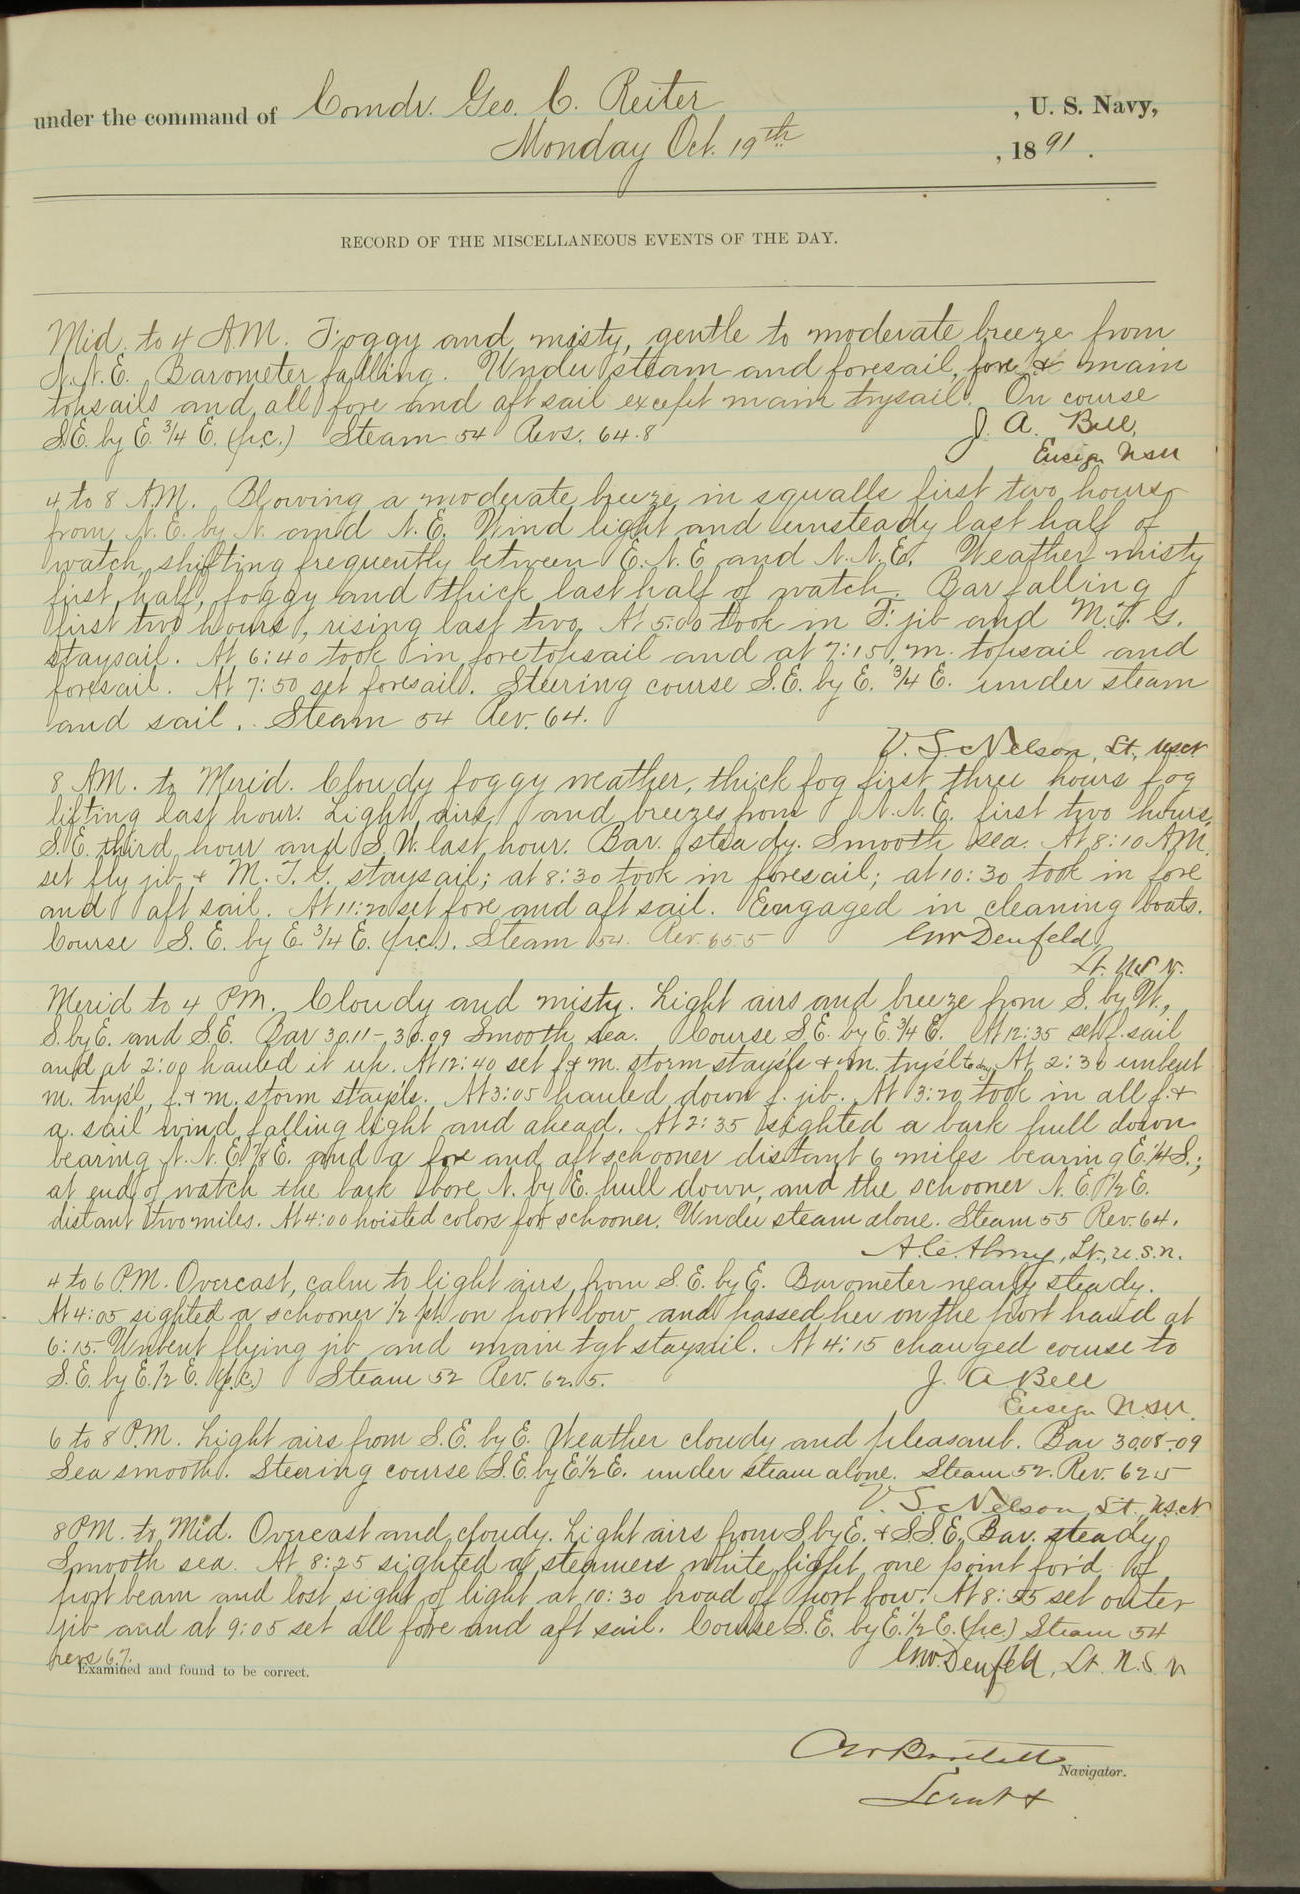 under the command of Comdr. Geo. C. Reiter, U. S. Navy,
Monday Oct. 19th, 1891.
RECORD OF THE MISCELLANEOUS EVENTS OF THE DAY.
Mid. to 4 AM. Foggy and misty, gentle to moderate breeze from
N.N.E. Barometer falling. Under steam and foresail, fore & main
topsails and all fore and aft sail except main trysail. On course
S.E. by E. 3/4 E. (p.c.) Steam 54 Revs. 64.8
J. A. Bell,
Ensign USN
4 to 8 A.M. Blowing a moderate breeze in squalls first two hours
from N.E. by N. and N.E. Wind light and unsteady last half of
watch, shifting frequently between E.N.E and N.N.E. Weather misty
first half, foggy and thick last half of watch. Bar falling
first two hours, rising last two. At 5:00 took in F. jib and M.T.G.
staysail. At 6:40 took in foretopsail and at 7:15, m. topsail and
foresail. At 7:50 set foresail. Steering course S.E. by E. 3/4 E. under steam
and sail. Steam 54 Rev. 64.
V. S. Nelson, Lt., USN
8 AM. to Merid. Cloudy foggy weather, thick fog first three hours fog
lifting last hour. Light airs and breezes from N.N.E. first two hours,
S.E. third hour and S.W. last hour. Bar. steady. Smooth sea. At 8:10 AM.
set fly jib & M.T.G. staysail; at 8:30 took in foresail; at 10:30 took in fore
and aft sail. At 11:20 set fore and aft sail. Engaged in cleaning boats.
Course S.E. by E. 3/4 E. (p.c.). Steam 54. Rev. 65.5
Denfeld,
Lt. U.S.N.
Merid to 4 PM. Cloudy and misty. Light airs and breeze from S. by W.,
S. by E. and S.E. Bar 30.11 - 30.09 Smooth sea. Course S.E. by E. 3/4 E. At 12:35 set f. sail
and at 2:00 hauled it up. At 12:40 set f. & m. storm stays'ls & m. trys'l to dry. At 2:30 unbent
m. trys'l, f. & m. storm stays'ls. At 3:05 hauled down f. jib. At 3:20 took in all f. &
a. sail wind falling light and ahead. At 2:35 sighted a bark hull down
bearing N.N.E. 7/8 E. and a fore and aft schooner distant 6 miles bearing E. 1/4 S.;
at end of watch the bark bore N. by E. hull down, and the schooner N.E. 1/2 E.
distant two miles. At 4:00 hoisted colors for schooner. Under steam alone. Steam 55 Rev. 64.
A. C. Almy, Lt., U.S.N.
4 to 6 P.M. Overcast, calm to light airs from S.E. by E. Barometer nearly steady.
At 4:05 sighted a schooner 1/2 pt. on port bow and passed her on the port hand at
6:15. Unbent flying jib and main tgt staysail. At 4:15 changed course to
S.E. by E. 1/2 E. (p.c.) Steam 52 Rev. 62.5.
J. A. Bell
Ensign USN.
6 to 8 P.M. Light airs from S.E. by E. Weather cloudy and pleasant. Bar 30.08-.09
Sea smooth. Steering course S.E. by E 1/2 E. under steam alone. Steam 52. Rev. 62.5
V. S. Nelson, Lt. USN
8 PM. to Mid. Overcast and cloudy. Light airs from S. by E. & S.S.E. Bar. steady.
Smooth sea. At 8:25 sighted a steamers white light one point for'd of
port beam and lost sight of light at 10:30 broad off port bow. At 8:55 set outer
jib and at 9:05 set all fore and aft sail. Course S.E. by E. 1/2 E. (p.c.) Steam 54
revs 67.
Denfeld, Lt. U.S.N
Examined and found to be correct.
Bartlett
Navigator.
Lieut